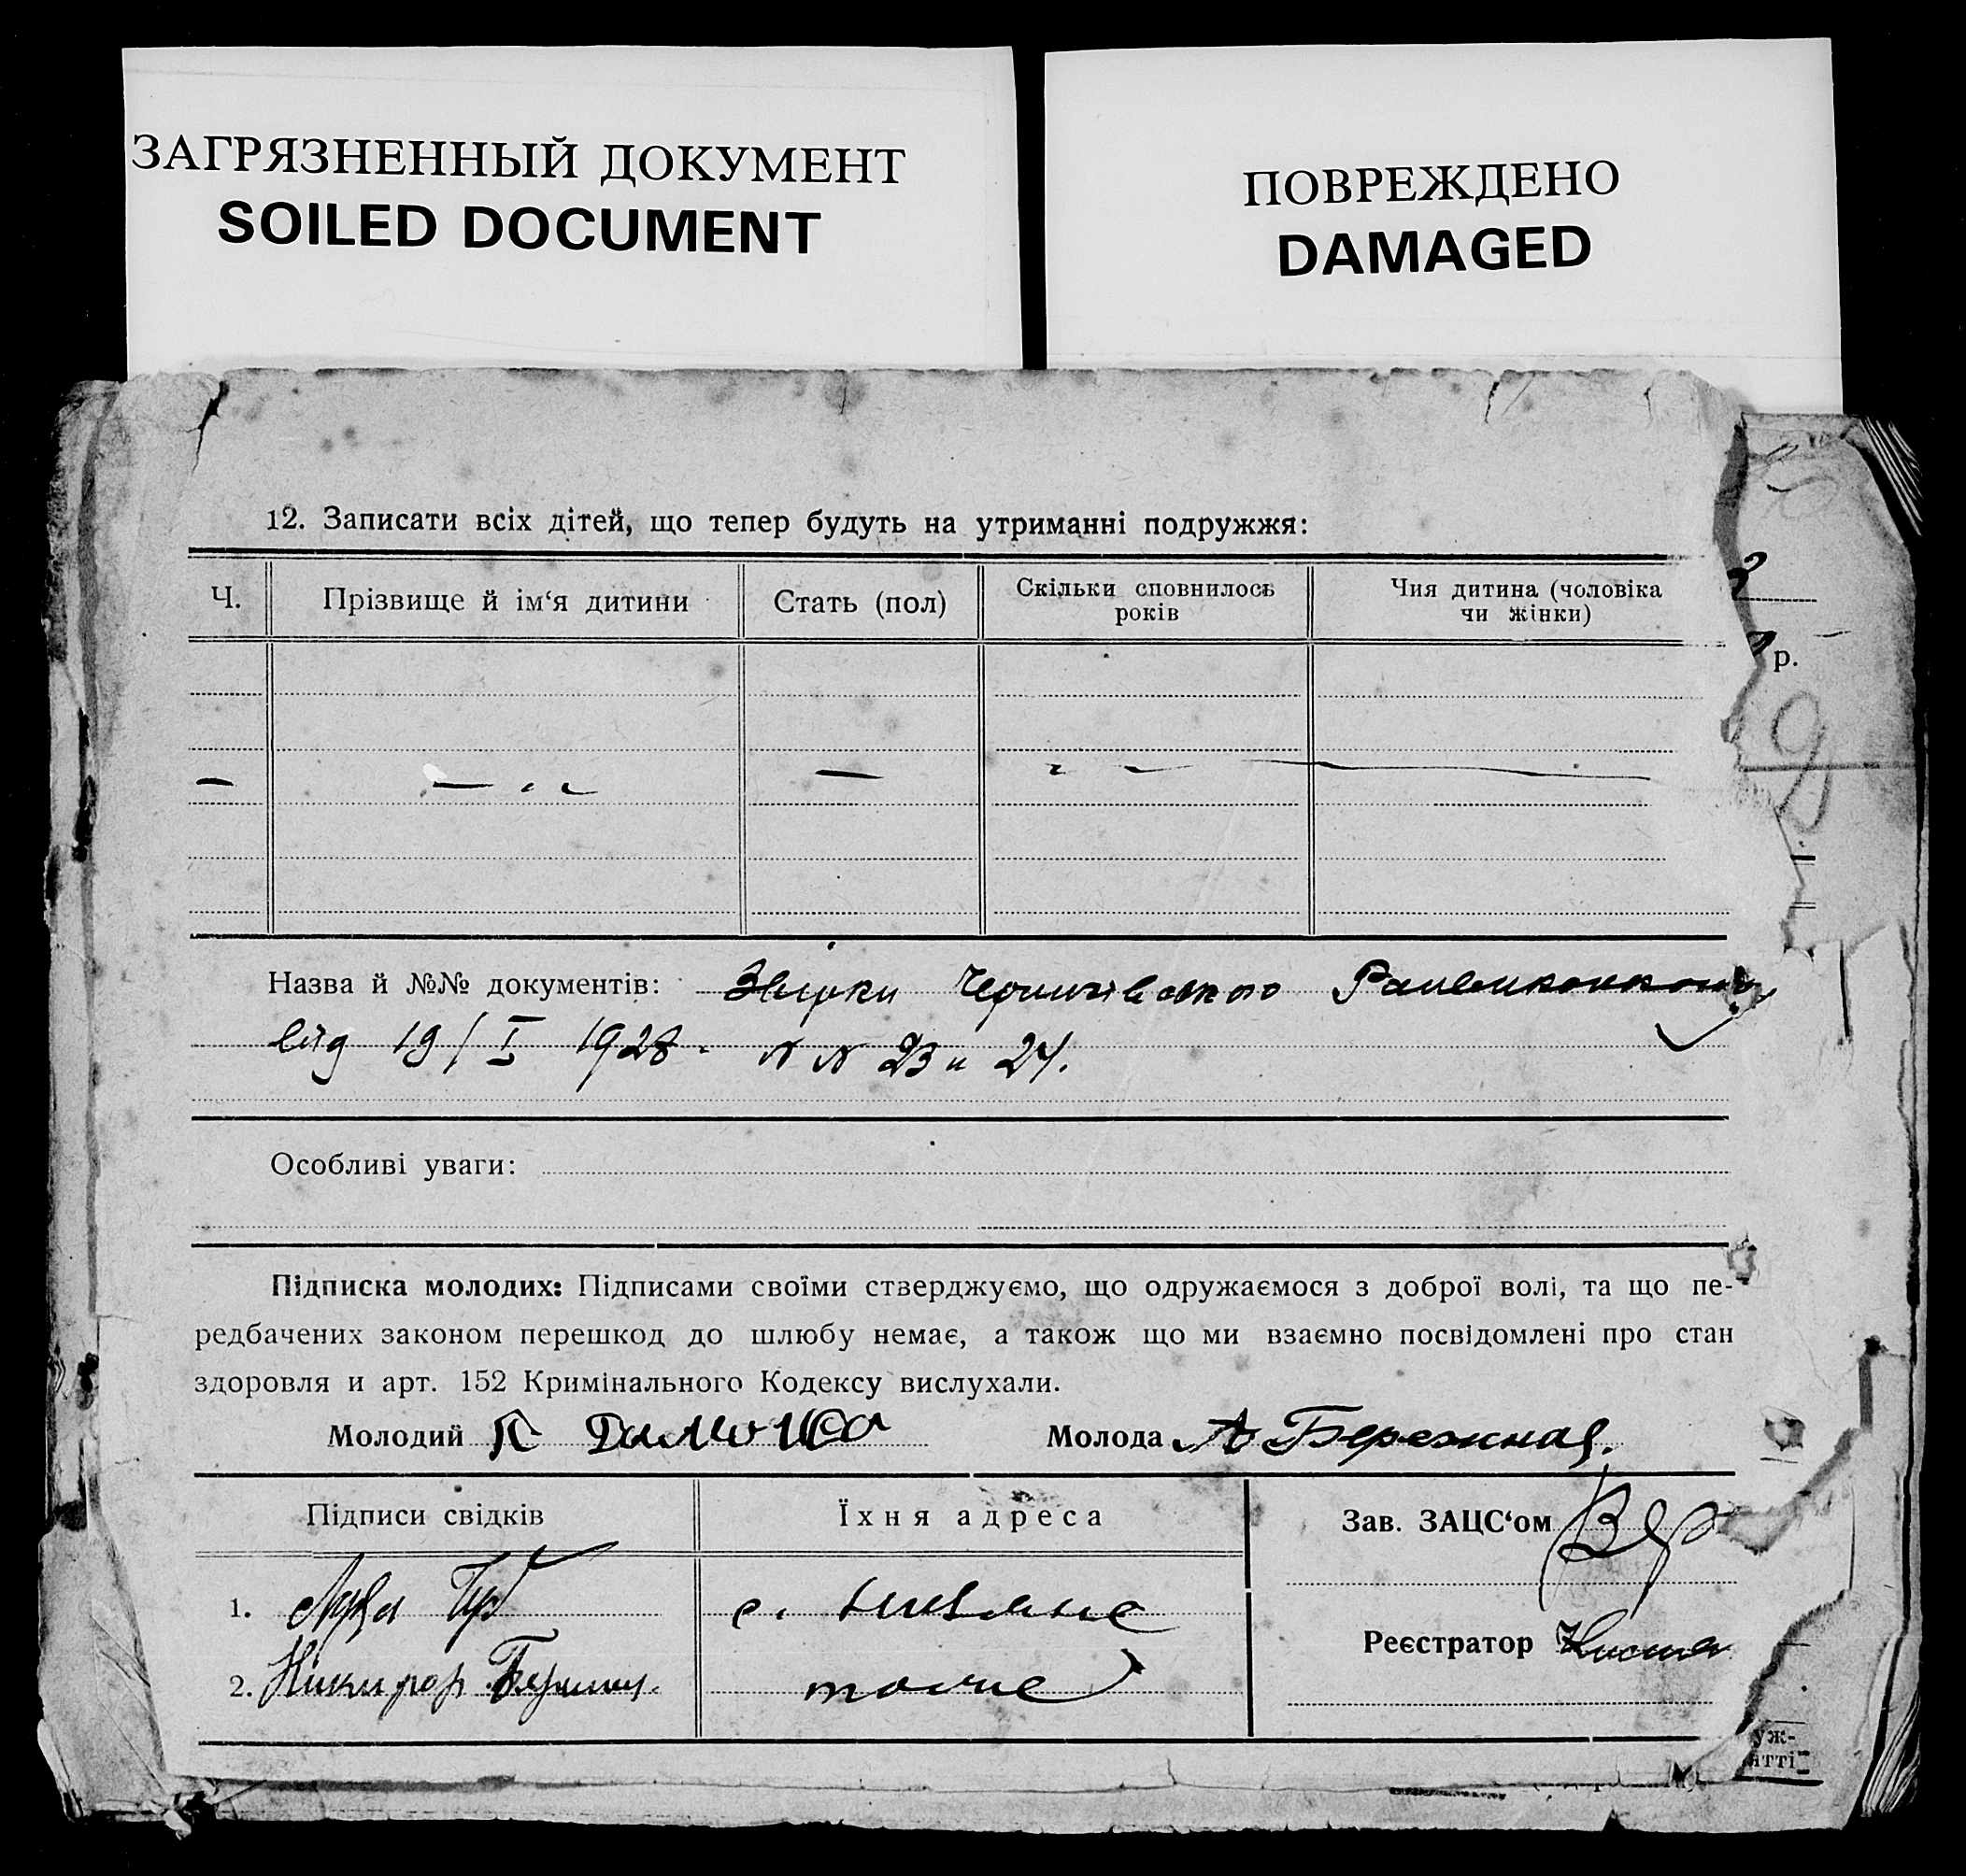 ЗАГРЯЗНЕННЫЙ ДОКУМЕНТ
SOILED DOCUMENT
ПОВРЕЖДЕНО
DAMAGED
12. Записати всіх дітей, що тепер будуть на утриманні подружжя:
Ч. Прізвище й ім‘я дитини Стать (пол) Скільки сповнилось років Чия дитина (чоловіка чи жінки)
р.
Назва й №№ документів:
від 19/I 1928. N N 23 и 24.
Особливі уваги:
Підписка молодих: Підписами своїми стверджуємо, що одружаємося з доброї волі, та що пе-
редбачених законом перешкод до шлюбу немає, а також що ми взаємно посвідомлені про стан
здоровля и арт. 152 Кримінального Кодексу вислухали.
Молодий Молода А Бережная.
Підписи свідків Їхня адреса Зав. ЗАЦС‘ом
1. с.
Реєстратор
2. тоже
уж-
атті